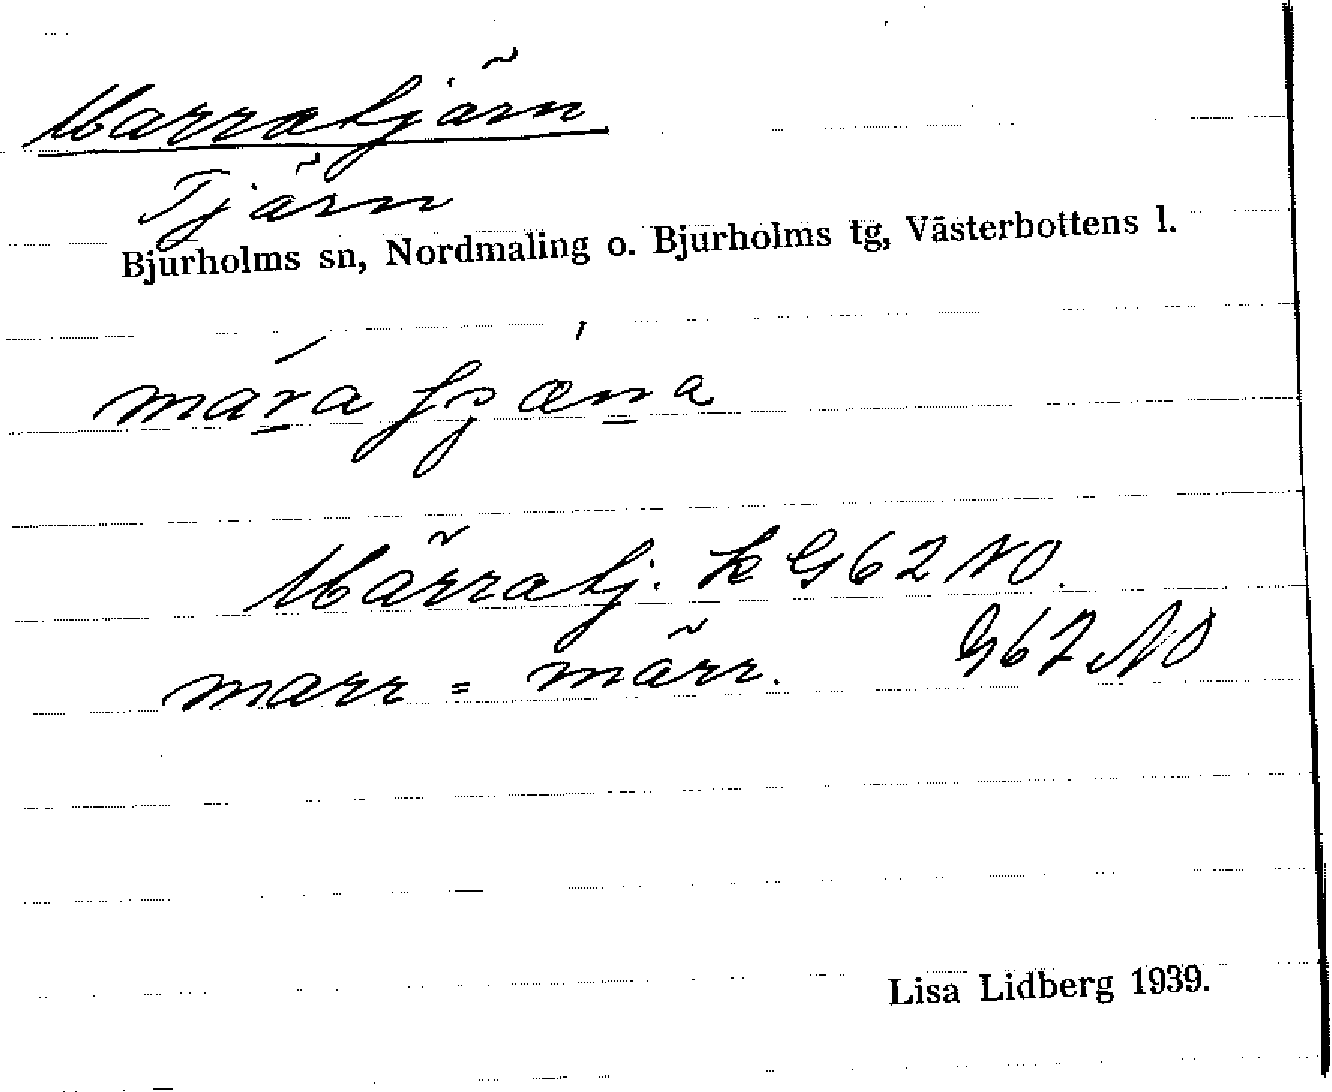 Marratjärn
Tjärn
Bjurholms sn, Nordmaling o. Bjurholms tg, Västerbottens l.
Märratj. k G62 NO.
marr = märr. G62 NO
Lisa Lidberg 1939.